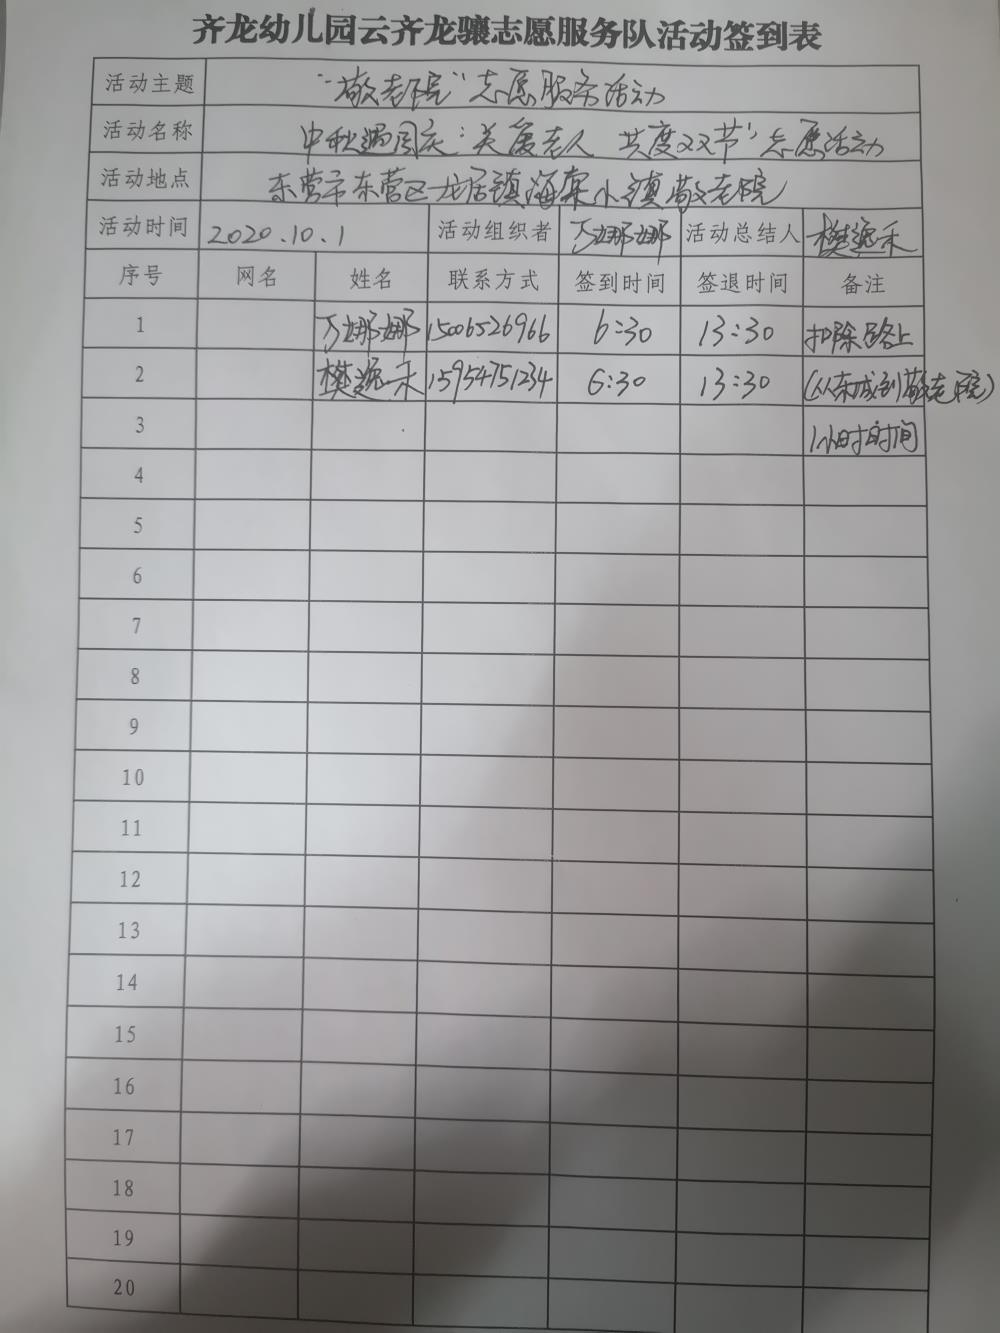 齐龙幼儿园云齐龙骧志愿服务队活动签到表
活动主题 “敬老院”志愿服务活动
活动名称 中秋遇国庆：关爱老人 共度双节”志愿活动
活动地点 东营市东营区龙居镇海棠小镇敬老院
活动时间 2020.10.1 活动组织者 万娜娜 活动总结人 樊逸禾
序号 网名 姓名 联系方式 签到时间 签退时间 备注
1 万娜娜 15006526966 6:30 13:30 扣除路上
2 樊逸禾 15954751234 6:30 13:30 (从东城到敬老院)
3 1小时时间
4
5
6
7
8
9
10
11
12
13
14
15
16
17
18
19
20